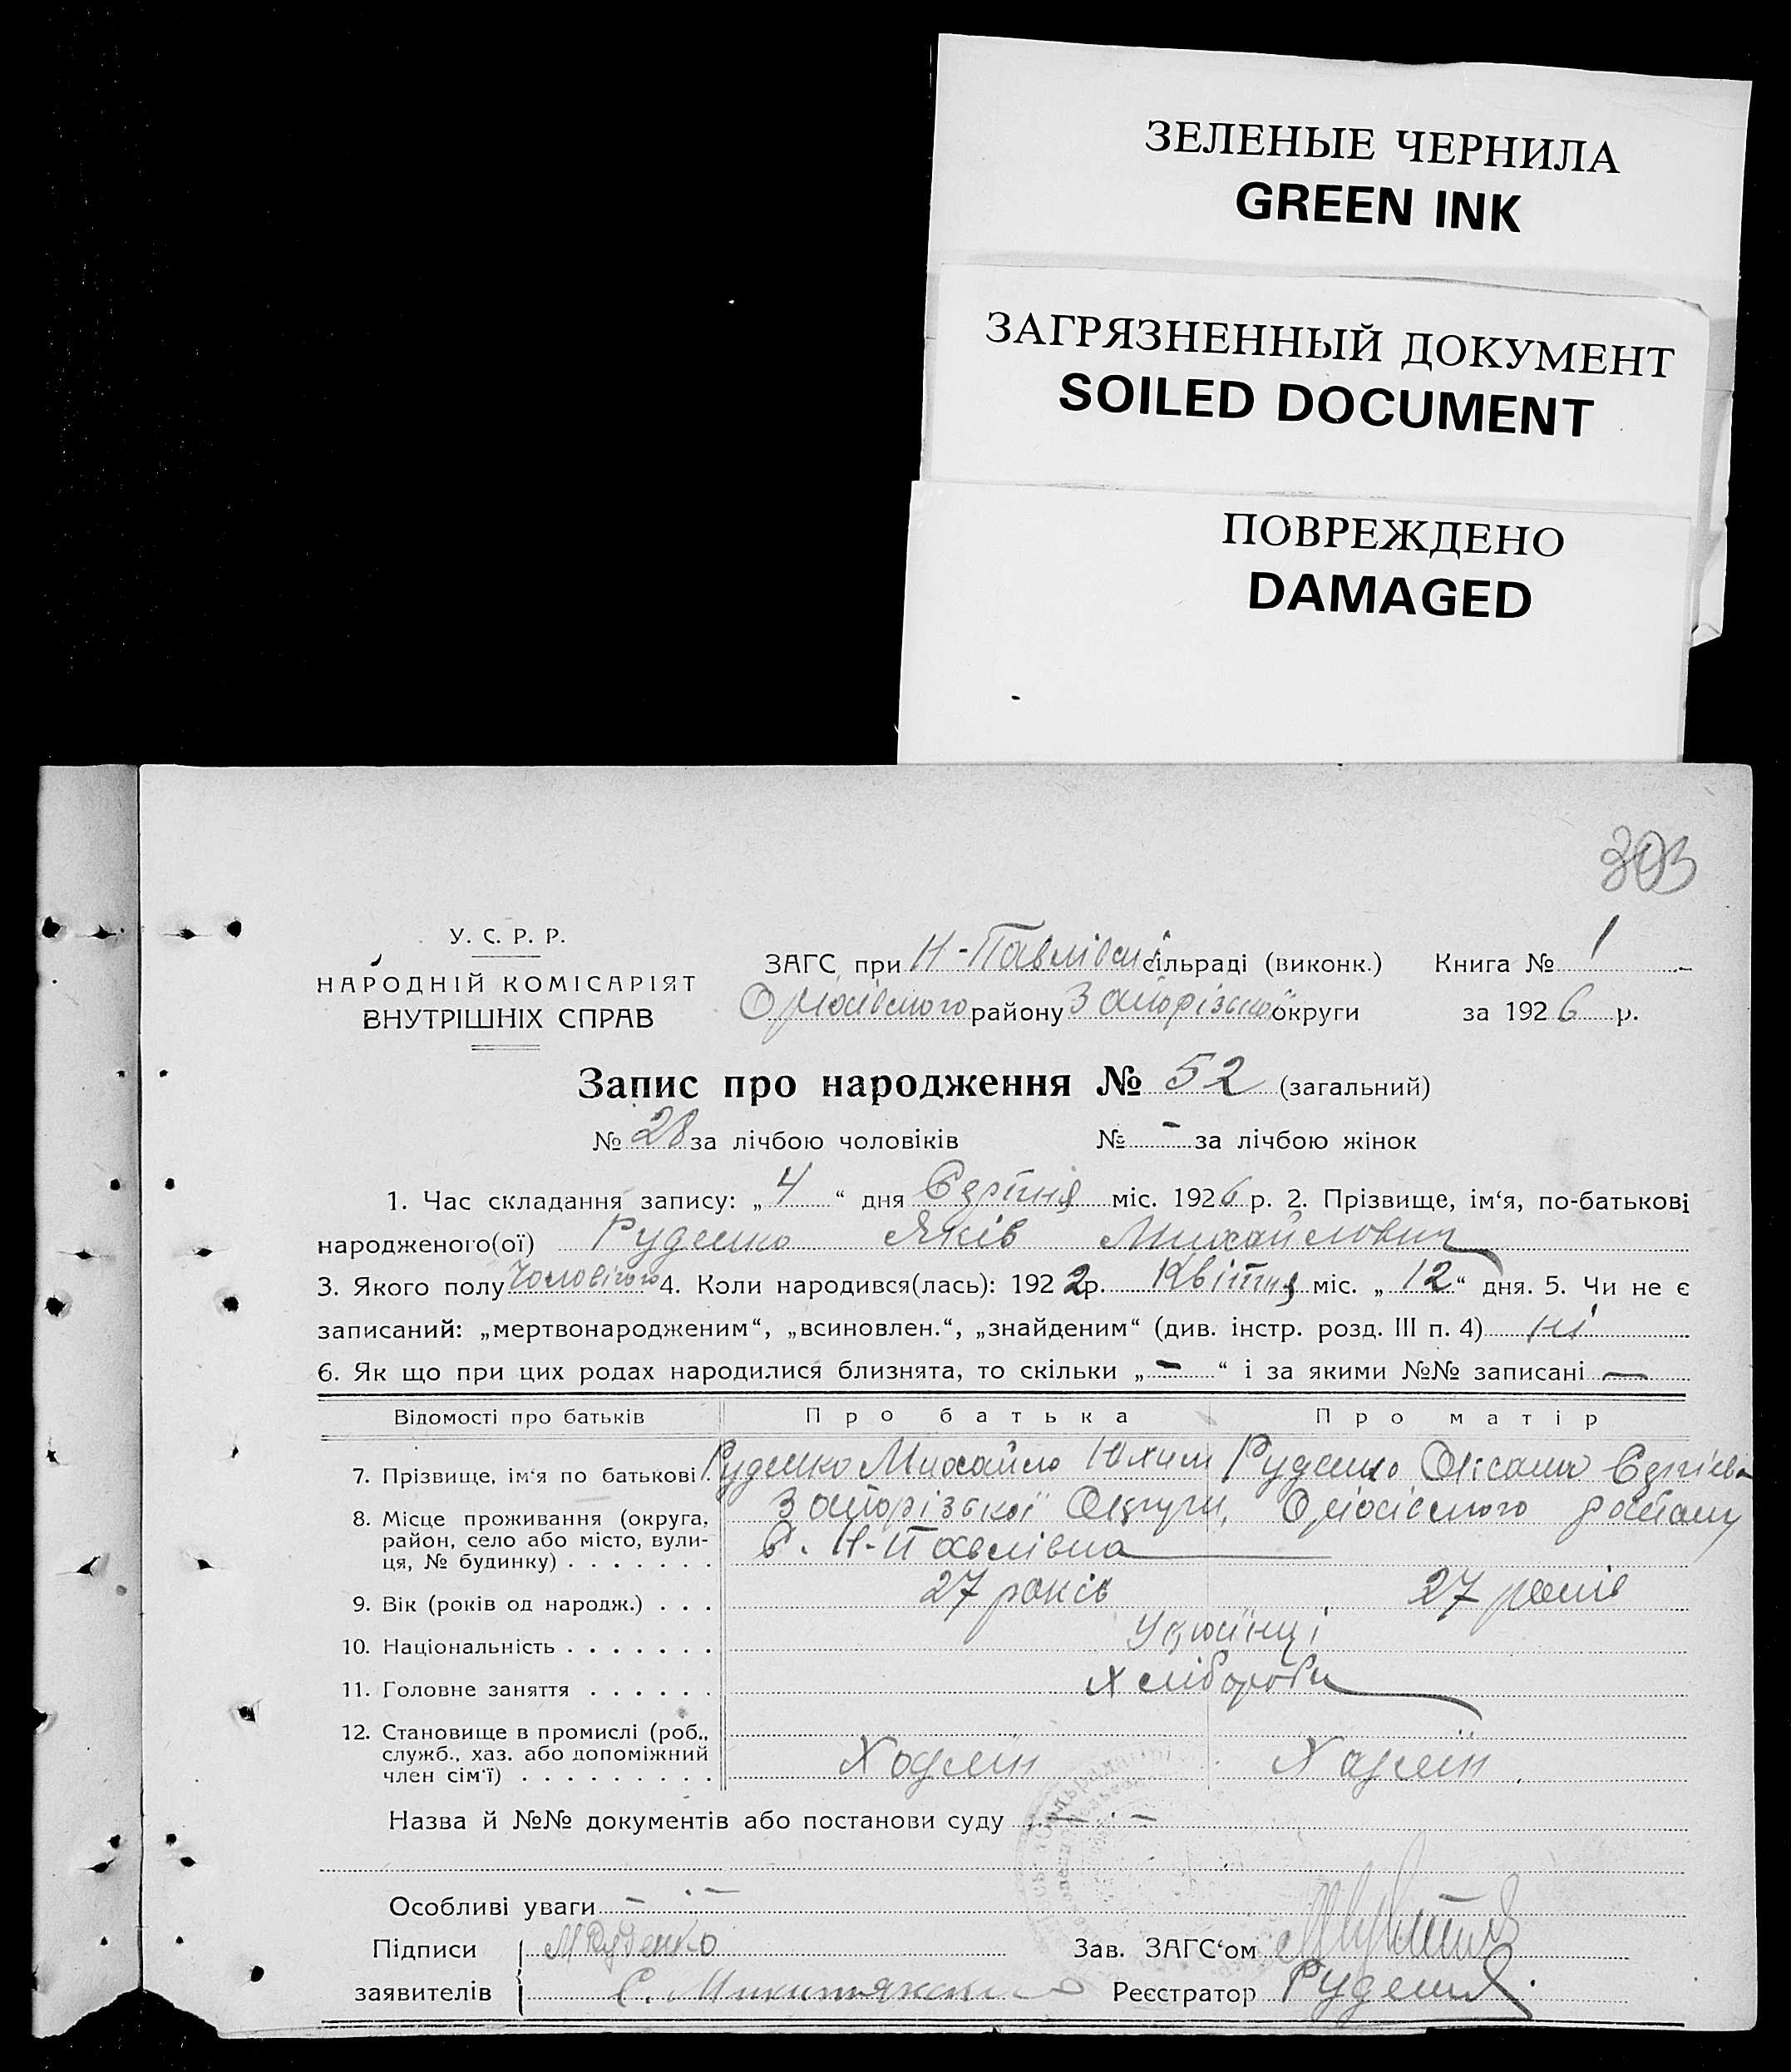 ЗЕЛЕНЫЕ ЧЕРНИЛА
GREEN INK
ЗАГРЯЗНЕННЫЙ ДОКУМЕНТ
SOILED DOCUMENT
ПОВРЕЖДЕНО
DAMAGED
303
У. С. Р. Р.
НАРОДНІЙ КОМІСАРІЯТ
ВНУТРІШНІХ СПРАВ
ЗАГС при Н-Павлівській сільраді (виконк.) Книга № 1
Оріхівського району Запорізької округи за 1926 р.
Запис про народження № 52 (загальний)
№ 28 за лічбою чоловіків № - за лічбою жінок
1. Час складання запису: „ 4 “ дня Серпня міс. 1926 р. 2. Прізвище, ім‘я, по-батькові
народженого(ої) Руденко Яків Михайлович
3. Якого полу Чоловічого 4. Коли народився(лась): 1922 р. Квітня міс. „ 12 “ дня. 5. Чи не є
записаний: „мертвонародженим“, „всиновлен.“, „знайденим“ (див. інстр. розд. III п. 4) ні
6. Як що при цих родах народилися близнята, то скільки „ — “ і за якими №№ записані —
Відомості про батьків Про батька Про матір
7. Прізвище, ім‘я по батькові Руденко Михайло Юхим Руденко Оксана Сергієвна
8. Місце проживання (округа, район, село або місто, вулиця, № будинку) . . . . . . . Запорізької Округи, Оріхівського району
с. Н-Павлівка
9. Вік (років од народж.) . . . 27 років 27 років
10. Національність . . . . . . . Українці
11. Головне заняття . . . . . . Хлібороби
12. Становище в промислі (роб., служб., хаз. або допоміжний член сім‘ї) . . . . . . . . .
Назва й №№ документів або постанови суду —
Особливі уваги — —
Підписи М Руденко Зав. ЗАГС‘ом
заявителів С. Реєстратор Руденко